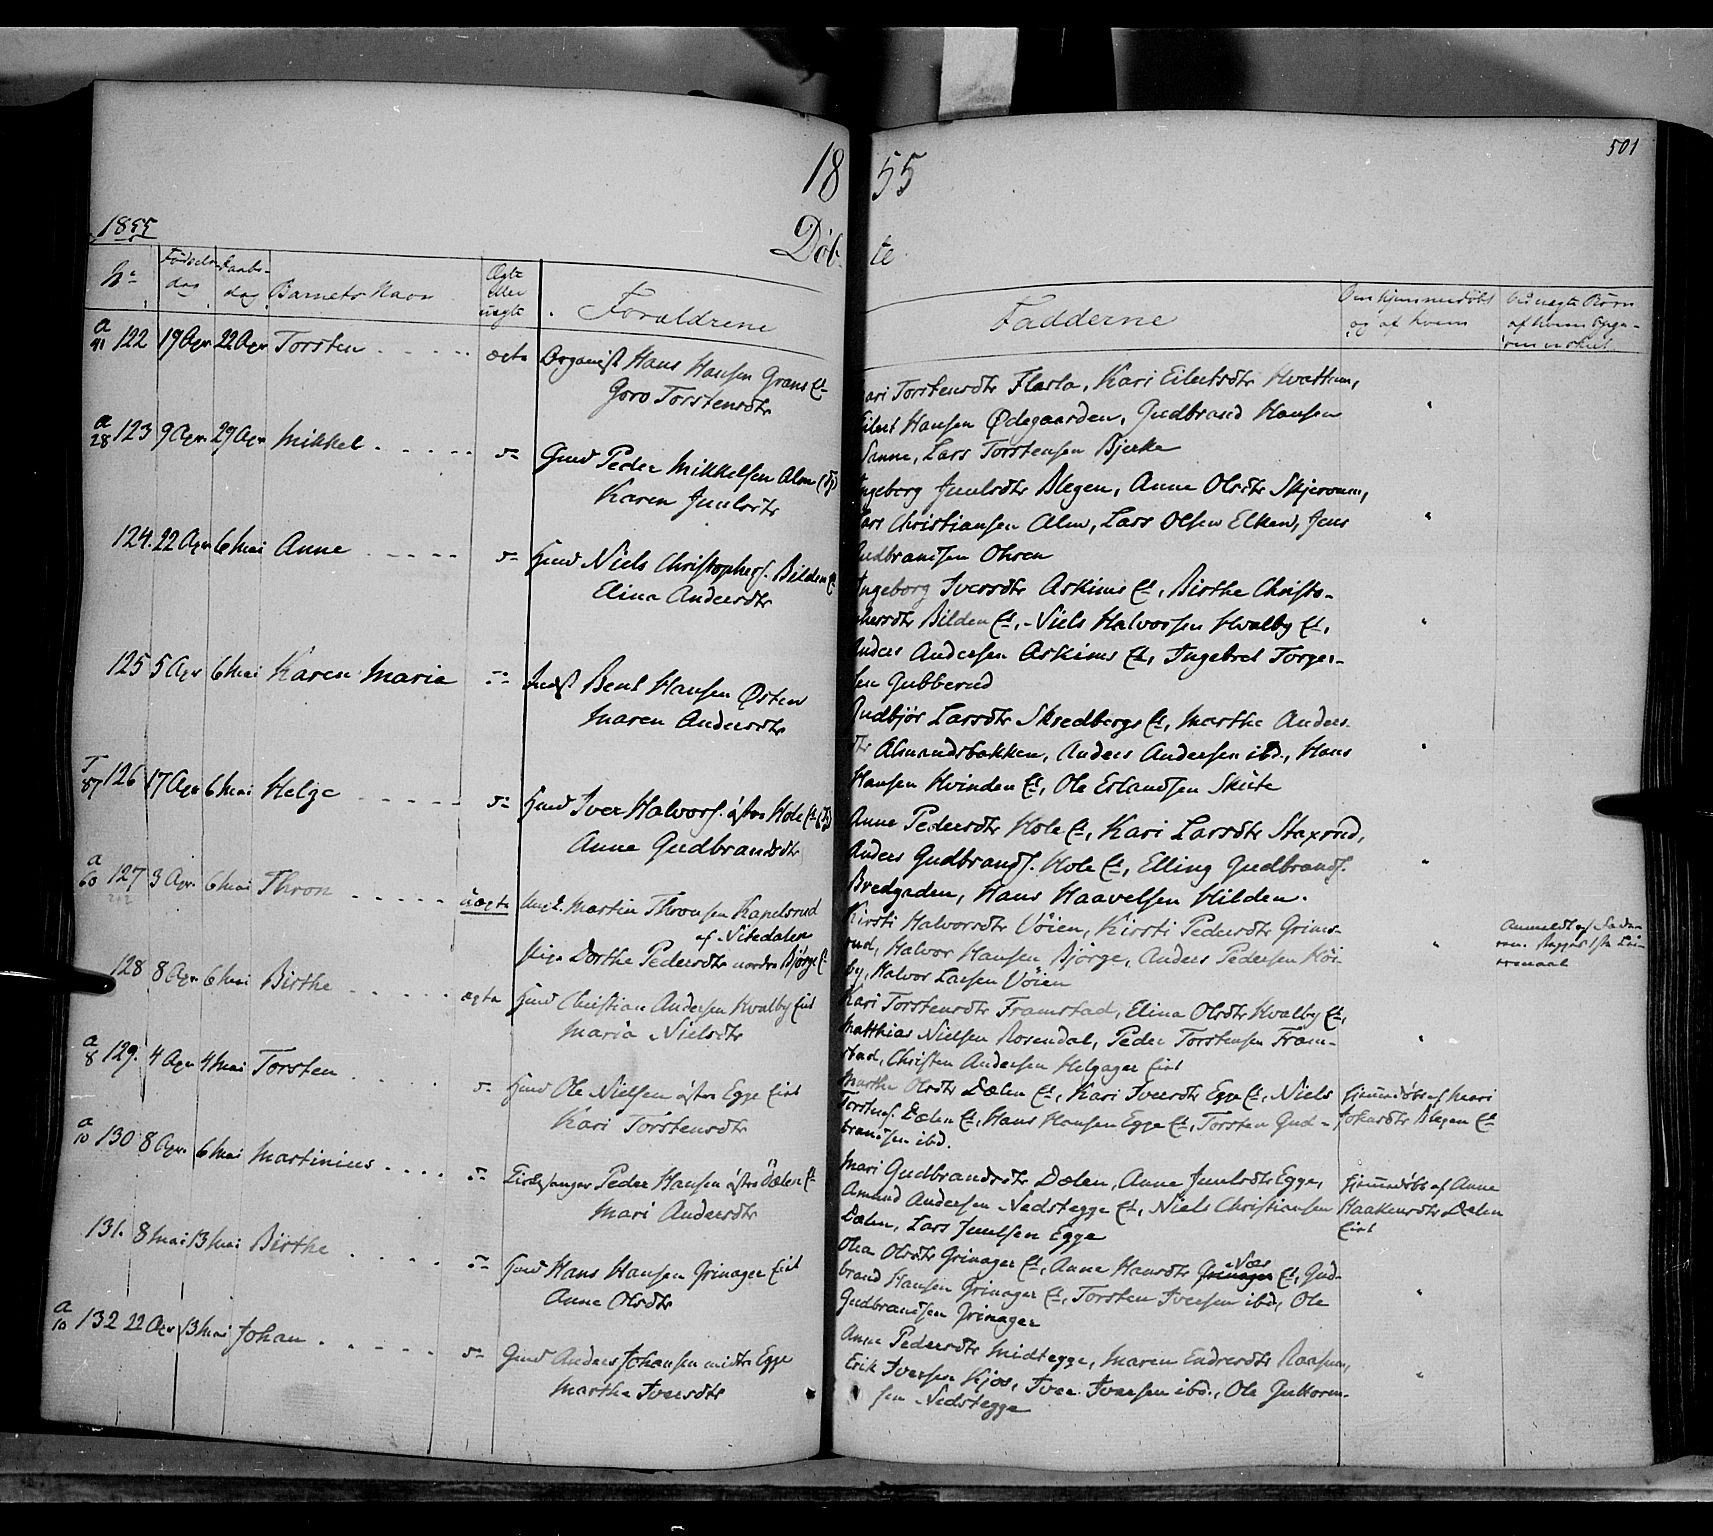 501
18 55
1855
Døb- te
No Fødsels- dag Daabs- dag Barnets Navn Ægte eller uægte Forældrene Fadderne Om hjemmedøbt og af hvem
a 41 122 19 Apr 22 Apr Torsten ægte Organist Hans Hansen Grans Et
Goro Torstensdtr
Kari Torstensdtr Flarla, Kari Eilertsdtr Hvattum,
Eilert Hansen Ødegaarden, Gudbrand Hansen
Sanne, Lars Torstensen Bjerke
a 28 123 9 Apr 29 Apr Mikkel Gmd Peder Mikkelsen Alm
Karen Juulsdtr
Ingeborg Juulsdtr Blegen, Anne Olsdtr Skjervum,
Lars Christiansen Alm, Lars Olsen Elken, Jens
Gudbrandsen Ohren
124. 22 Apr 6 Mai Anne Gmd Niels Christophers. Bilden Et
Elina Andersdtr
Ingeborg Iversdtr Askims Et, Birthe Christo-
phersdtr Bilden Et, Niels Halvorsen Hvalby Et,
Anders Andersen Askims Et, Ingebret Torger-
sen Gubberud
125 5 Apr 6 Mai Karen Maria Indst Bent Hansen Østen
Maren Andersdtr
Gudbjør Larsdtr Skredbergs Et, Marthe Anders-
dtr Almandsbakken, Anders Andersen ibd., Hans
Hansen Hvinden Et, Ole Erlandsen Skute
T 87 126 17 Apr 6 Mai Helge Gmd Iver Halvors. østre Hole Et
Anne Gudbrandsdtr
Anne Pedersdtr Hole Et, Kari Larsdtr Staxrud,
Anders Gudbrands. Hole Et, Elling Gudbrands.
Bredgaden, Hans Haavelsen Hilden.
a 60 127 3 Apr 6 Mai Thron uægte Ungk. Martin Thronsen Kapelsrud
af Nitedalen
Pige Dorthe Pedersdtr nordre Bjørge Et
Kirsti Halvorsdtr Vøien, Kirsti Pedersdtr Grims-
rud, Halvor Hansen Bjørge, Anders Pedersen Høi-
by, Halvor Larsen Vøien
128 8 Apr 6 Mai Birthe ægte Gmd Christian Andersen Hvalby Eiet
Maria Nielsdtr
Kari Torstensdtr Framstad, Elina Olsdtr Hvalby Et,
Matthias Nielsen Rosendal, Peder Torstensen Fram-
stad, Christen Andersen Helgager Eiet
a 8 129. 4 Apr 4 Mai Torsten Gmd Ole Nielsen østre Egge Eiet
Kari Torstensdtr
Marthe Olsdtr Dælen Et, Kari Iversdtr Egge Et, Niels
Torstens. Dælen Et, Hans Hansen Egge Et, Torsten Gud-
brandsen ibd.
Hjemmedøbt af Mari
Johansdtr Blegen Et
a 10 130 8 Apr 6 Mai Martinius Kirkesanger Peder Hansen østre Dælen Et
Mari Andersdtr
Mari Gudbrandsdtr Dælen, Anne Juulsdtr Egge,
Amund Andersen Nedstegge Et, Niels Christiansen
Dælen, Lars Juulsen Egge
Hjemmedøbt af Anne
Haakensdtr Dælen
Eiet
131. 8 Mai 13 Mai Birthe Gmd Hans Hansen Grinager Eiet
Anne Olsdtr
Olea Olsdtr Grinager Et, Anne Hansdtr Grinager Næs Et, Gud-
brand Hansen Grinager Et, Torsten Iversen ibd., Ole
Gudbrandsen Grinager
a 10 132 22 Apr 13 Mai Johan Gmd Anders Johansen midtre Egge
Marthe Iversdtr
Anne Pedersdtr Midtegge, Maren Endresdtr Raasum,
Erik Iversen Kjos, Iver Iversen ibd., Ole Guttorm-
sen Nedstegge